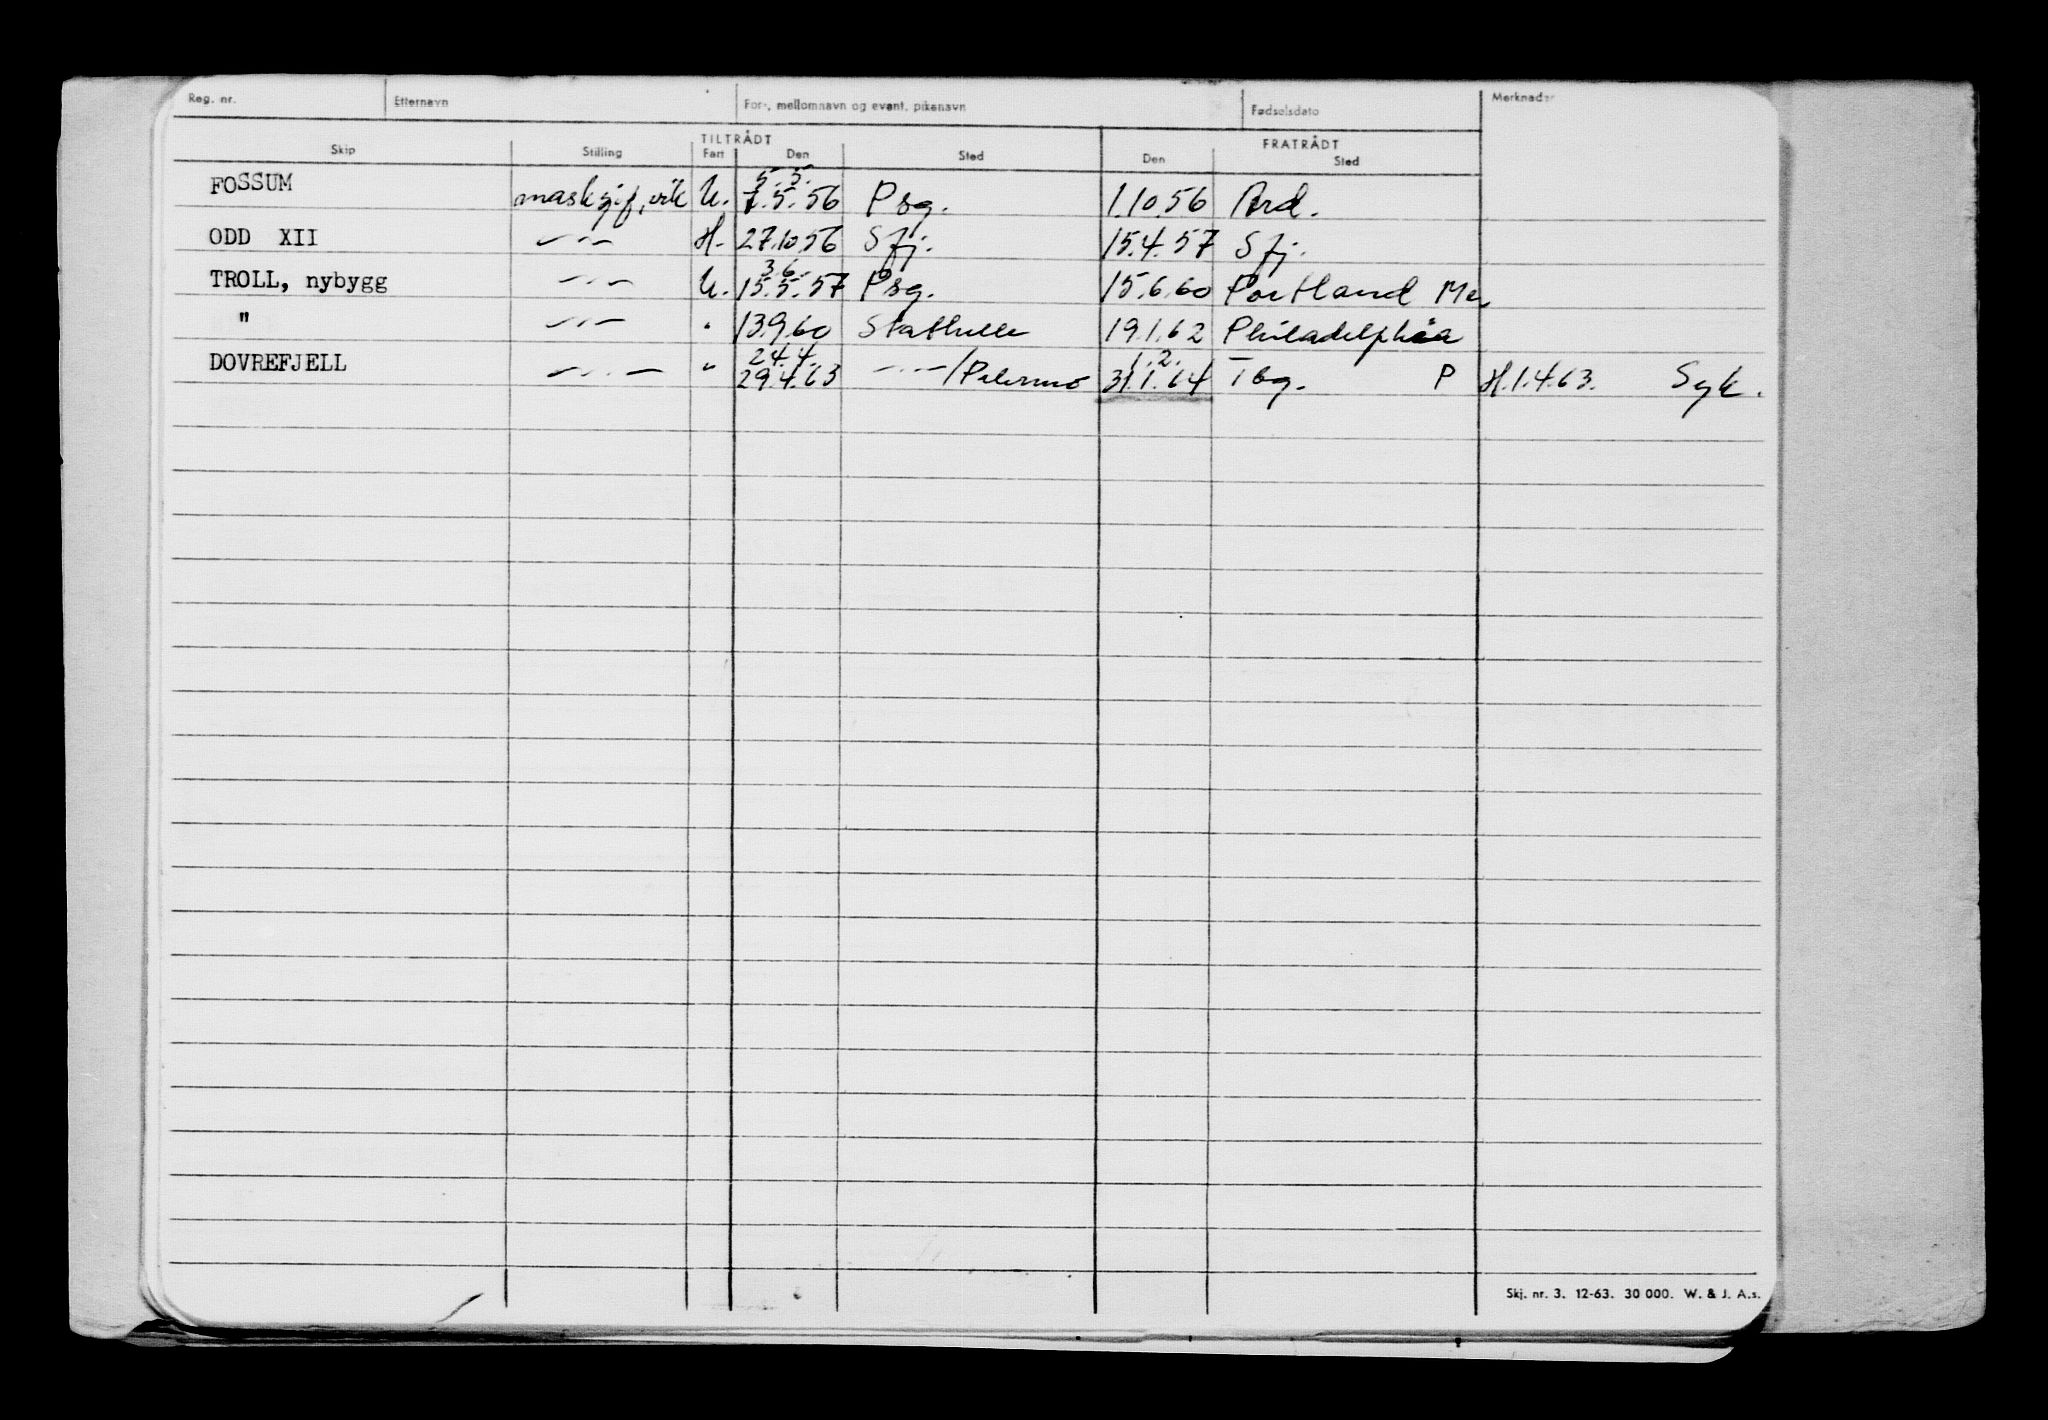 Reg. nr. Etternavn For-, mellomnavn og event. pikenavn Fødselsdato Merknader
TILTRÅDT FRATRÅDT
Skip Stilling Fart Den Sted Den Sted
5. 5.
FOSSUM U. 7.5.56 Psg. 1.10.56
ODD XII —"— H. 27.10.56 Sfj. 15.4.57 Sfj.
3.6.
TROLL, nybygg —"— U. 15.5.57 Psg. 15.6.60 Portland Me,
" —"— " 13.9.60 Stathelle 19.1.62 Philadelphia
24.4. 1.2.
DOVREFJELL —"— " 29.4.63 —"—/Palermo 31.1.64 Tbg. P H.1.4.63. Syk.
Skj. nr. 3. 12-63. 30 000. W. & J. A.s.